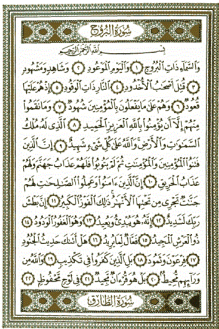 سُورَةُ البُرُوجِ
بِسْمِ ٱللَّهِ ٱلرَّحْمَٰنِ ٱلرَّحِيمِ
وَٱلسَّمَآءِ ذَاتِ ٱلْبُرُوجِ ١ وَٱلْيَوْمِ ٱلْمَوْعُودِ ٢ وَشَاهِدٍ وَمَشْهُودٍ
٣ قُتِلَ أَصْحَٰبُ ٱلْأُخْدُودِ ٤ ٱلنَّارِ ذَاتِ ٱلْوَقُودِ ٥ إِذْ هُمْ عَلَيْهَا
قُعُودٌ ٦ وَهُمْ عَلَىٰ مَا يَفْعَلُونَ بِٱلْمُؤْمِنِينَ شُهُودٌ ٧ وَمَا نَقَمُوا۟
مِنْهُمْ إِلَّآ أَن يُؤْمِنُوا۟ بِٱللَّهِ ٱلْعَزِيزِ ٱلْحَمِيدِ ٨ ٱلَّذِى لَهُۥ مُلْكُ
ٱلسَّمَٰوَٰتِ وَٱلْأَرْضِ وَٱللَّهُ عَلَىٰ كُلِّ شَىْءٍ شَهِيدٌ ٩ إِنَّ ٱلَّذِينَ
فَتَنُوا۟ ٱلْمُؤْمِنِينَ وَٱلْمُؤْمِنَٰتِ ثُمَّ لَمْ يَتُوبُوا۟ فَلَهُمْ عَذَابُ جَهَنَّمَ وَلَهُمْ
عَذَابُ ٱلْحَرِيقِ ١٠ إِنَّ ٱلَّذِينَ ءَامَنُوا۟ وَعَمِلُوا۟ ٱلصَّٰلِحَٰتِ لَهُمْ
جَنَّٰتٌ تَجْرِى مِن تَحْتِهَا ٱلْأَنْهَٰرُ ذَٰلِكَ ٱلْفَوْزُ ٱلْكَبِيرُ ١١ إِنَّ بَطْشَ
رَبِّكَ لَشَدِيدٌ ١٢ إِنَّهُۥ هُوَ يُبْدِئُ وَيُعِيدُ ١٣ وَهُوَ ٱلْغَفُورُ ٱلْوَدُودُ ١٤
ذُو ٱلْعَرْشِ ٱلْمَجِيدُ ١٥ فَعَّالٌ لِّمَا يُرِيدُ ١٦ هَلْ أَتَىٰكَ حَدِيثُ ٱلْجُنُودِ
١٧ فِرْعَوْنَ وَثَمُودَ ١٨ بَلِ ٱلَّذِينَ كَفَرُوا۟ فِى تَكْذِيبٍ ١٩ وَٱللَّهُ مِن
وَرَآئِهِم مُّحِيطٌ ٢٠ بَلْ هُوَ قُرْءَانٌ مَّجِيدٌ ٢١ فِى لَوْحٍ مَّحْفُوظٍ ٢٢
سُورَةُ الطَّارِقِ